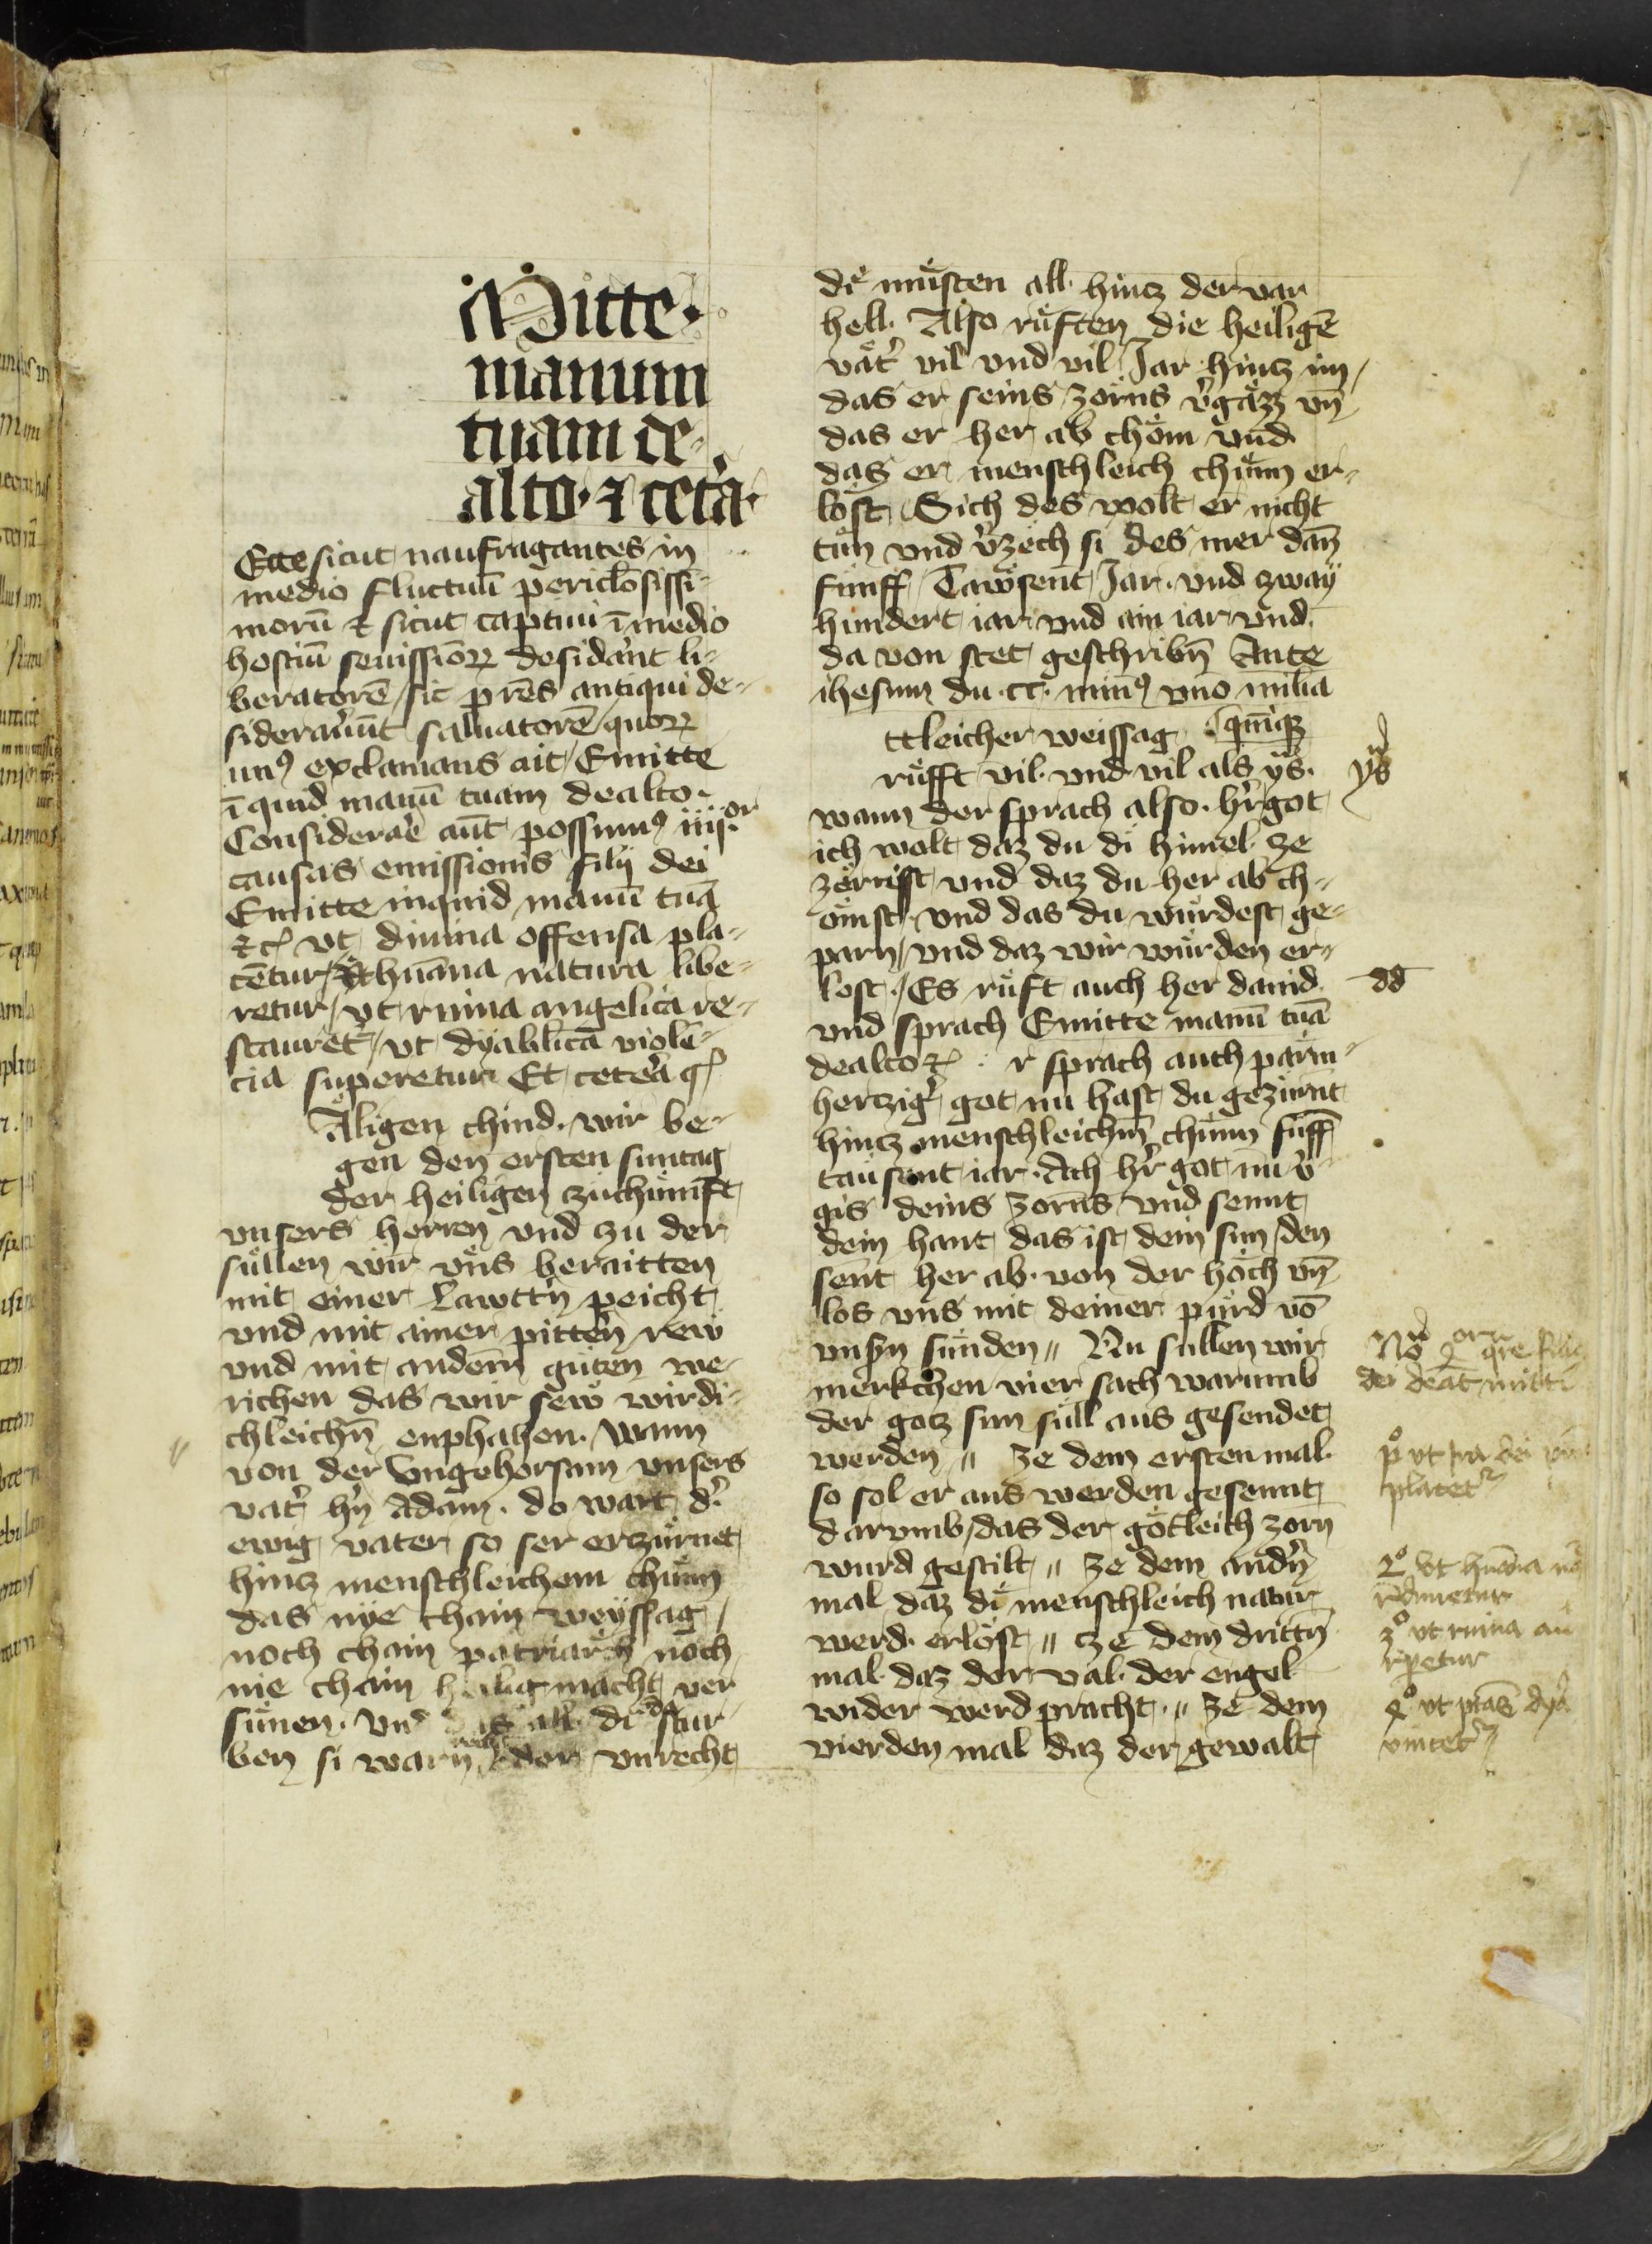 Mitte
manum
tuam de
alto · ⁊ cetͣa ·
Ecce sicut naufragantes in
medio fluctuū pericl̄osissi-
morū ⁊ sicut captiui ī medio
hostiū seuissiōꝝ desidāͣnt li-
beratorē / sic p̄res antiqui de-
siderauͤūt saluatorē / quoꝝ
unꝰ exclamans ait / Emitte
īquid manū tuam dealto ·
Considerare aūt possumꝰ iiijor
causas emissionis filij dei
Emitte inquid manū tuā
⁊cͥ vt diuina offensa pla-
cētur / vt hūana natura libe-
retur / vt ruina angelica re-
stauretᷣ / vt dyablicā violē-
cia superetur Et cetera
Aͤligen chind · wir be-
gen den ersten suntag
der heiligen zuͦchuͤmft
vnsers herren vnd zu der
suͤllen wir vns beraitten
mit einer Lawttn̄ peicht
vnd mit ainer pittern rew
vnd mit andern̄ guten we-
richen das wir sew wirdi-
chleichn̄ enphahen · wann
von der Vngehorsam vnsers
vatͤ hn̄ Adam · do wart dͤ
ewig vater so ser erzuͤrnet
hintz menschleichem chuͤnn
das nye chain weyssag /
noch chain patriarch noch
nie chain heilig macht ver
suͤnen · Vnd das all di da stur-
ben si warn recht oder vnrecht
dͤi muͤsten all · hintz der van
hell · Also ruͤften die heiligē
vaͤtͤ vil vnd vil Jar hintz im /
das er seins zorns v̓gaͤzz vn̄
das er her ab choͤm vnd
das er menschleich chuͤnn er-
loͤst / Sich des wolt er nicht
tuͤn vnd v̓zech si des mer dan̄
fuͤnff Tawsent Jar · vnd zway
hundert iar vnd ain iar vnd
da von stet geschribn̄ Ante
ihesum du · cc · minꝰ vno milia
quīqꝫ
ttleicher weissag
ruͤfft vil · vnd vil als ys ·
wann der sprach also · hr̄ got
ich wolt daz du di himel ze
zoͤrrist vnd daz du her ab ch-
oͤmst · vnd das du wuͤrdest ge-
parn / vnd daz wir wuͤrden er-
lost / Es ruͤft auch her dauid
vnd sprach Emitte manū tuā
dealto ⁊cͥ · r sprach auch parm-
hertzigͤ got nu hast du gezurnt
hintz menschleichm̄ chuͤnn fuͤff
tausent iar · Ach hr̄ got nu v̓-
gis deins zorns vnd sennt
dein hant das ist dein sun / den
sent her ab · von der hoͤch vn̄
los vns mit deiner puͤrd vō
vnsn̄ suͤnden // Nu sullen wir
merkchen vier sach warumb
der gotz sun suͤll aus gesendet
werden // ze dem ersten mal ·
so sol er aus werden gesennt
darumb / das der goͤtleich zorn
wurd gestilt // ze dem andn̄
mal daz dͤi menschleich natur
werd · erloͤst // cze dem drittn̄
mal · daz der val · der engel
wider werd pracht · // ze dem
vierden mal daz der gewalt
ys
dd
Nō
dei
pͦ vt
placetᷣ
2ͦ vt hūana
3ͦ vt ruina
4ͦ vt
vincetᷣ